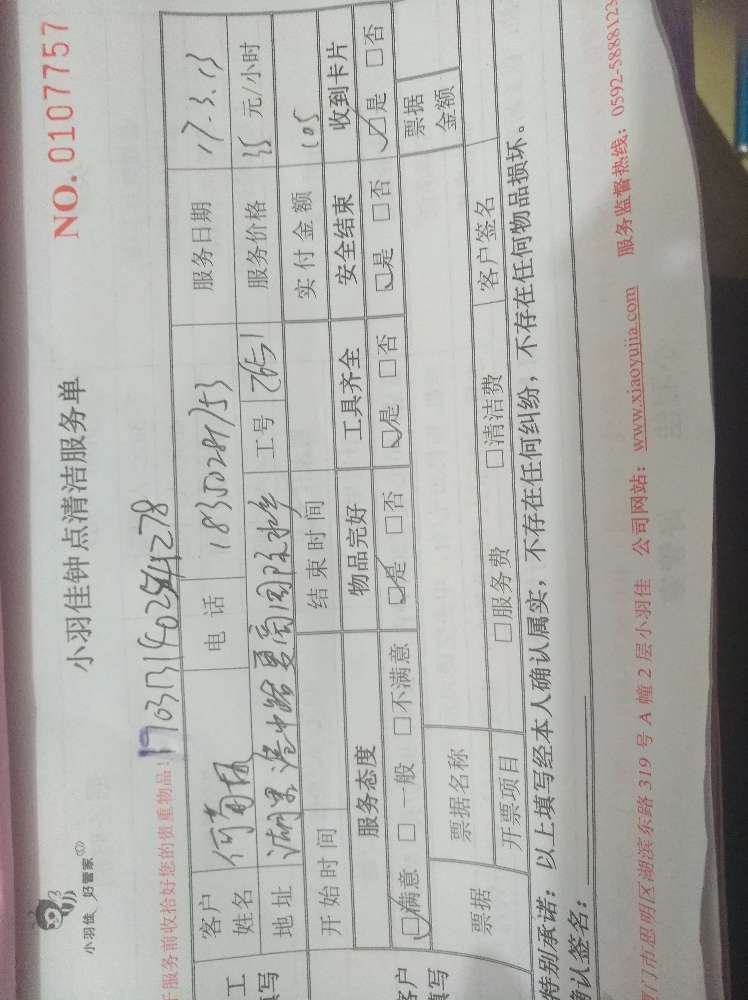 小羽佳 好管家
小羽佳钟点清洁服务单
NO. 0107757
服务前收拾好您的贵重物品!
客户姓名 何 电话 18350289153 服务日期 17.3.13
地址 湖里 工号 2651 服务价格 35 元/小时
开始时间 结束时间 实付金额 105
服务态度 物品完好 工具齐全 安全结束 收到卡片
满意 一般 不满意 是 否 是 否 是 否 是 否
票据 票据名称 票据金额
开票项目 服务费 清洁费 客户签名
特别承诺:以上填写经本人确认属实,不存在任何纠纷,不存在任何物品损坏。
确认签名:
门市思明区湖滨东路 319 号 A 幢 2 层小羽佳 公司网站:www.xiaoyujia.com 服务监督热线:0592-5888123